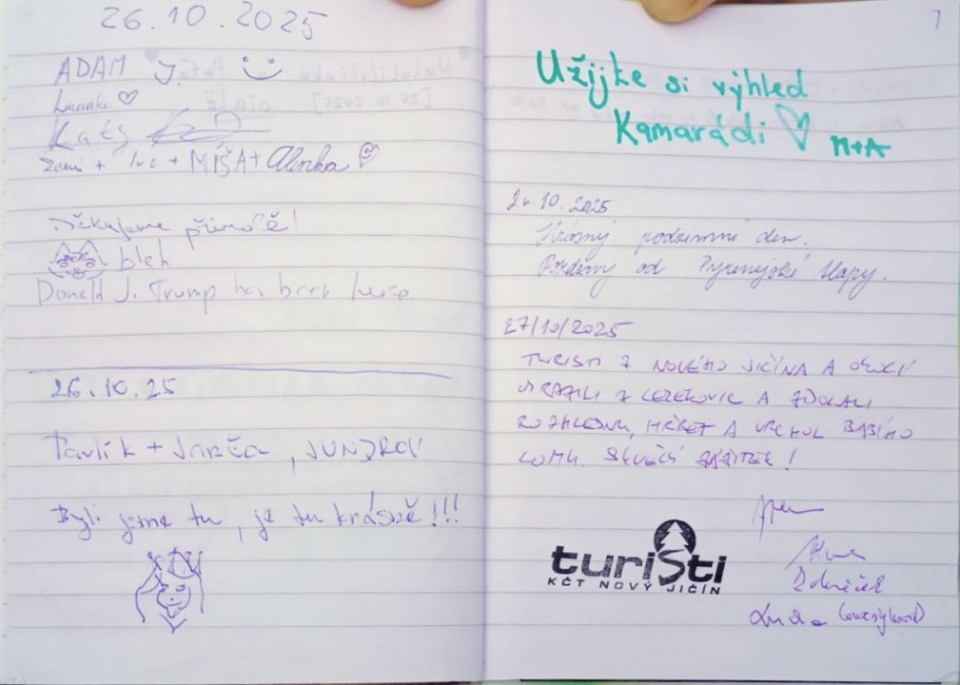 26.10.2025
ADAM J.
Lucinka
Katy
+ MIŠA + Alenka
Děkujeme přírodě!
bleh
Donald J. Trump has been here
26.10.25
Pavlík + Jarča, JUNDROV
Byli jsme tu, je tu krásně!!!
7
Užijke si výhled
Kamarádi M+A
26.10.2025
Krásný podzimní den.
od Pyrenejské tlapy.
27/10/2025
TURISTI Z NOVÉHO JIČÍNA A OKOLÍ
VYRAZILI Z LELEKOVIC A ZDOLALI
ROZHLEDNU, HŘBET A VRCHOL BABÍHO
LOMU. SKVĚLÝ ZÁŽITEK!
turisti
KČT NOVÝ JIČÍN
Zdeněček